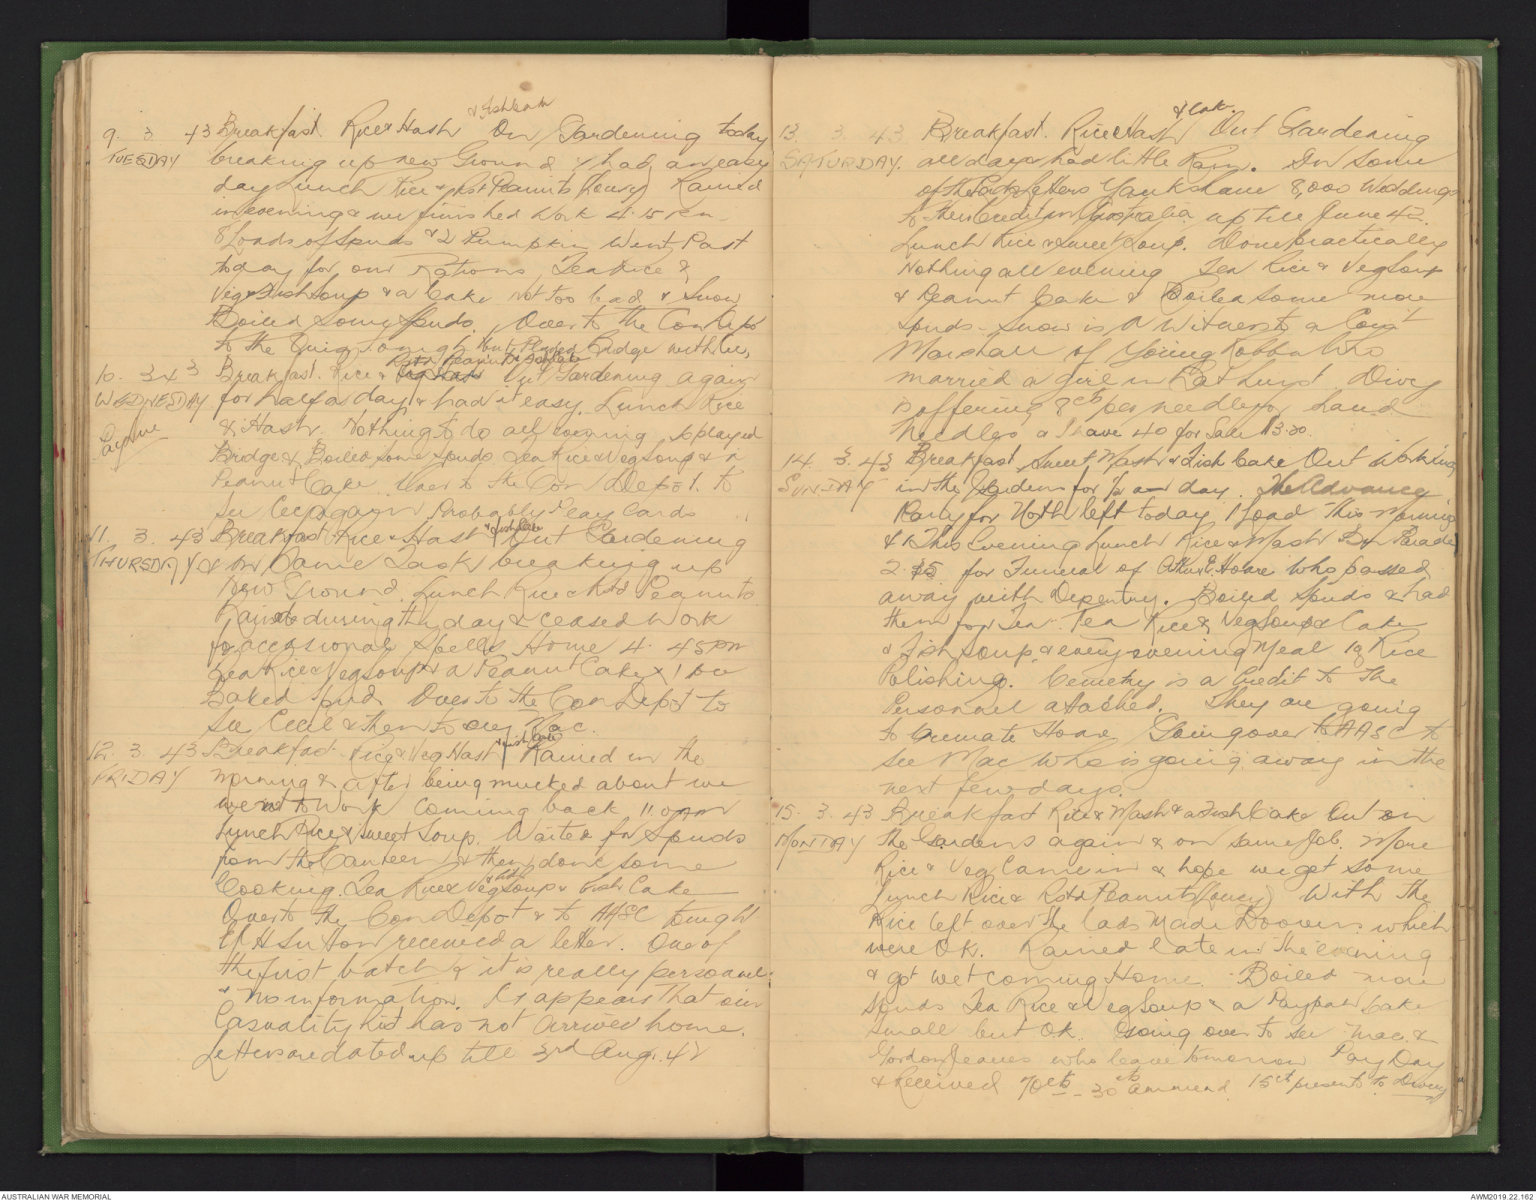 & Fishcake
9. 3 43 Breakfast. Rice & Hash On Gardening today
TUESDAY breaking up new Ground & had an easy
day Lunch Rice & Rst Peanuts (lousy) Rained
in evening & we finished Work 4.15 P.m.
8 Loads of Spuds & 2 Pumpkin Went Past
today for our rations Tea Rice &
Veg & Fish Soup & a Cake not too bad & Snow
Boiled some Spuds. Over to the Con Depot
to the Quiz tonight but Played Bridge with
Rst Peanuts &
10. 3 43 Breakfast. Rice & Out Gardening again
WEDNESDAY for half a day & had it easy. Lunch Rice
Payday & Hash. Nothing to do all evening so played
Bridge & Boiled some Spuds Tea Rice & Veg Soup & a
Peanut Cake. Over to the Con Depot to
see Cec again Probably Play Cards
& Fish Cake
11. 3. 43 Breakfast Rice & Hash Out Gardening
THURSDAY & on Same Task breaking up
New Ground. Lunch Rice & Rstd Peanuts
Rained during the day & ceased Work
for occasional Spells Home 4.45 PM
Tea Rice & Veg Soup & a Peanut Cake & 1
Baked Spud. Over to the Con Depot to
see Cecil & then to see Mac.
& Fish Cake
12. 3 43 Breakfast Rice & Veg Hash Rained in the
FRIDAY Morning & after being mucked about we
went to Work Coming back 11.0 AM
Lunch Rice & Sweet Soup. Waited for Spuds
from the Canteen & then done some
Cooking. Tea Rice & Veg Soup & Fish Cake
Over to the Con Depot & to AASC tonight
received a letter. One of
the first batch & it is really personal
& no information. It appears that our
Casualty list has not arrived home.
Letters are dated up till 3rd Aug. 42
& Cake.
13. 3. 43 Breakfast. Rice & Hash Out Gardening
SATURDAY. all day & had little Rain. In some
of the letters Yanks have 8,000 Weddings
to their Credit in Australia up till June 42.
Lunch Rice & Sweet Soup. Done practically
Nothing all evening Tea Rice & Veg Soup
& Peanut Cake & Boiled some more
Spuds. Snow is a Witness to a Court
Marshall of Young Robbn Who
married a girl in Bathurst. Divvy
is offering 8cts per needle for hand
Needles & I have 40 for Sale $3.20
14. 3. 43 Breakfast Sweet Mash & Fish Cake Out Working
SUNDAY in the Gardens for ½ a day. The Advance
Party for North left today 1 load This Morning
& 1 This Evening Lunch Rice & Mash On Parade
2.15 for Funeral of Arthur E. Hoare who passed
away with Dysentry. Boiled Spuds & had
them for Tea. Tea Rice & Veg Soup & Cake
& Fish Soup & every evening Meal Rice
Polishing. Cemetry is a Credit to The
Personnel attached. They are going
to Cremate Hoare Going over to AASC to
see Mac Who is going away in the
next few days.
15. 3. 43 Breakfast Rice & Mash & a Fish Cake Out on
MONDAY the Gardens again & on same Job. More
Rice & Veg Came in & hope we get some
Lunch Rice & Rstd Peanuts (lousy) With the
Rice left over the lads Made Doovers which
were OK. Rained late in the evening
& got wet coming Home. Boiled more
Spuds Tea Rice & Veg Soup & a Cake
small but OK. Going over to see Mac &
Gordon Jeanes who leave tomorrow Pay Day
& Received 70cts - 30cts 15ct present to Divvy
AUSTRALIAN WAR MEMORIAL
AWM2019.22.162